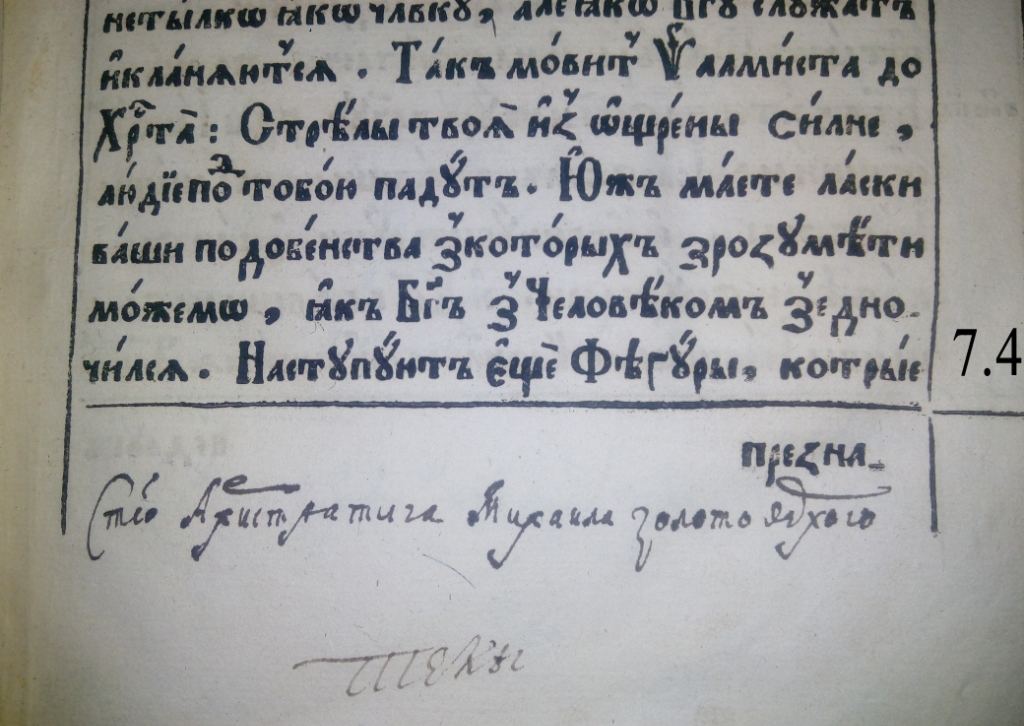 нетылкѡ ꙗкѡ чл҃вку, але ꙗкѡ Бг҃у служатъ
и҆ кла́нѧютсѧ. Та́къ мо́витъ Ѱалми́ста до
Хрⷭ҇та̀: Стрѣ́лы твоѧ̀ и҆зѡ҆щре́ны си́лне,
лю́дїе поⷣ тобо́ю паду́тъ. Ю҆жъ ма́ете ла́ски
ва́ши подобе́нства з̾кото́рыхъ зрозумѣ́ти
мо́жемѡ, ꙗ҆къ Бг҃ъ з̾ Человѣ́комъ з̾едно-
чи́лсѧ. Наступу́ютъ є҆щѐ Фѣгу́ры, которые
7.4
презна-
Ст҃го Архистратига Михаила золото